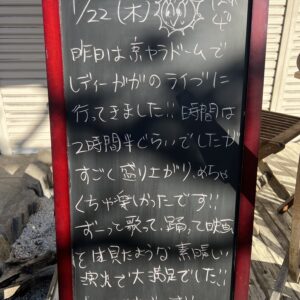 1/22(木)
昨日は京セラドームで
レディーガガのライブに
行ってきました!!時間は
2時間半ぐらいでしたが
すごく盛り上がり、めちゃ
くちゃ楽しかったです!!
ずーっと歌って、踊って映画
を見たような素晴しい
演出で大満足でした!!